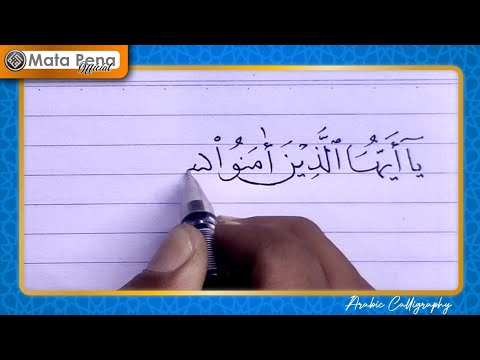 Mata Pena
Official
يَآ أَيُّهَا ٱلَّذِيْنَ أٰمَنُواْ
Arabic Calligraphy